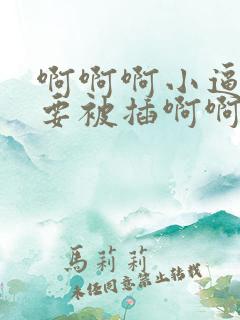 啊啊啊小逼
要被插啊啊
馬莉莉
未经同意禁止转载